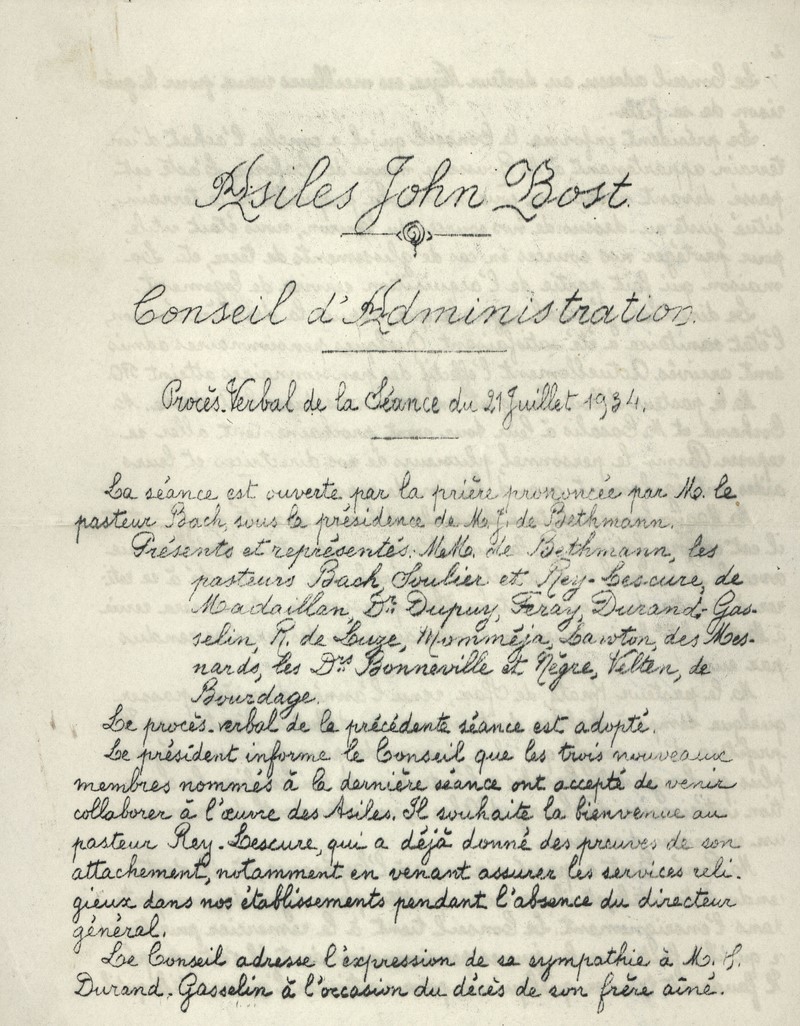 Asiles John Bost.
Conseil d'Administration.
Procès-Verbal de la Séance du 21 Juillet 1934.
La séance est ouverte par la prière prononcée par M. le
pasteur Bach, sous la présidence de M. J. de Bethmann.
Présents et représentés: M.M. de Bethmann, les
pasteurs Bach, Soulier et Rey-Lescure, de
Madaillan, Dr. Dupuy, Feray, Durand-Gas-
selin, R. de Luze, Momméja, Lawton, des Mes-
nards, les Drs Bonneville et Nègre, Velten, de
Bourdage.
Le procès-verbal de la précédente séance est adopté.
Le président informe le Conseil que les trois nouveaux
membres nommés à la dernière séance ont accepté de venir
collaborer à l'œuvre des Asiles. Il souhaite la bienvenue au
pasteur Rey-Lescure, qui a déjà donné des preuves de son
attachement, notamment en venant assurer les services reli-
gieux dans nos établissements pendant l'absence du directeur
général.
Le Conseil adresse l'expression de sa sympathie à M.
Durand-Gasselin à l'occasion du décès de son frère aîné.